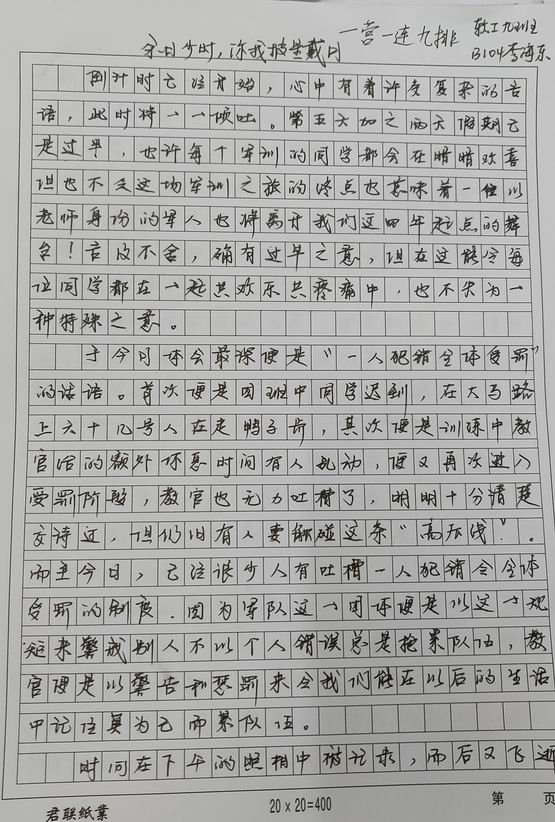 一营一连九排 软工九班
B104 李海东
今日少时,你我披星戴月
倒计时已经开始,心中有着许多复杂的言
语,此时将一一倾吐。第五天加之两天假期已
是过半,也许每个军训的同学都会在暗暗欢喜
但也不这场军训之旅的终点也意味着一位以
老师身份的军人也将离开我们这四年起点的舞
台!言及不舍,确有过早之意,但在这能令每
位同学都在一起共欢乐共疼痛中,也不失为一
种特殊之意。
于今日体会最深便是“一人犯错全体受罚”
的话语。首次便是因班中同学迟到,在大马路
上六十几号人在走鸭子步,其次便是训练中教
官给的额外休息时间有人乱动,便又再次进入
受罚阶段,教官也无力吐槽了,明明十分清楚
交待过,但仍旧有人要触碰这条“高压线”。
而至今日,已经很少人有吐槽一人犯错令全体
受罚的制度.因为军队这一团体便是以这一规
矩来警戒别人不以个人错误总是拖累队伍,教
官便是以警告和惩罚来令我们能在以后的生活
中记住莫为己而累队伍。
时间在下午的照相中被记录,而后又飞逝
君联纸业 20×20=400 第 页